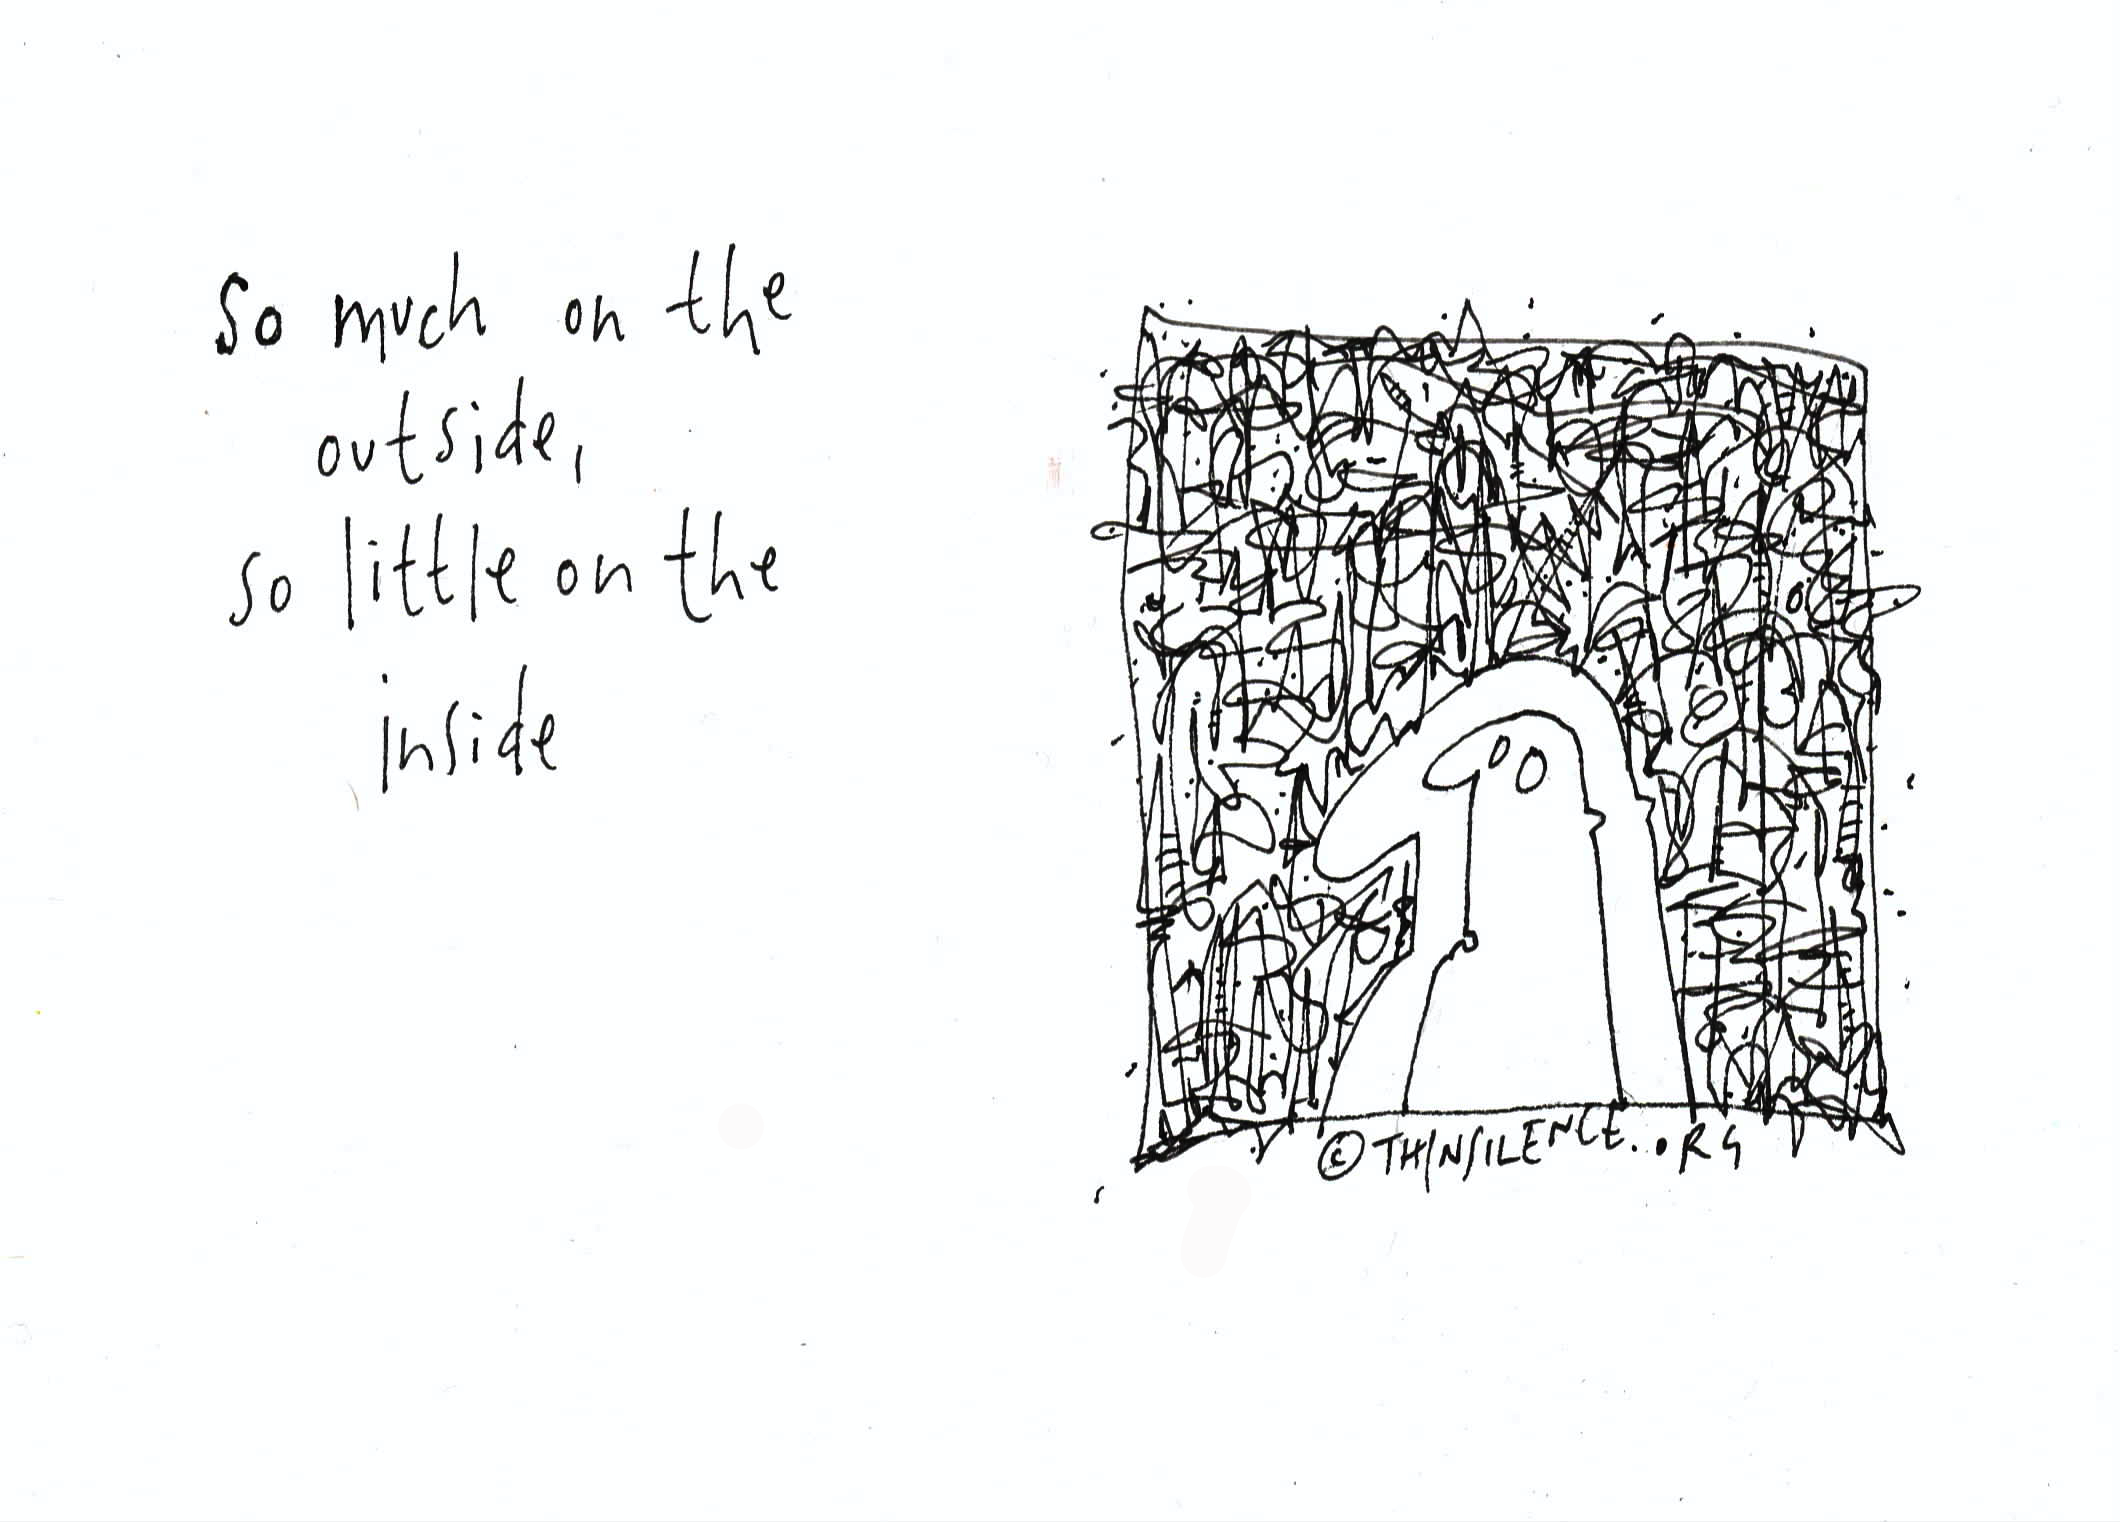 So much on the
outside,
so little on the
inside
© THINSILENCE..ORG